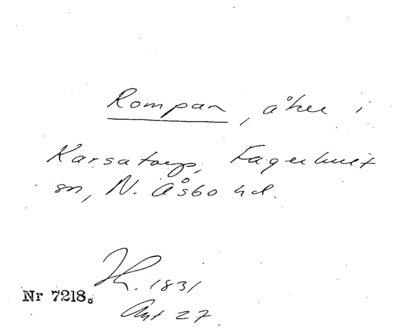 Rompan, åker i
Karsatorp, Fagerhult
sn, N. Åsbo hd.
Kh. 1831
Akt 27
Nr 7218.